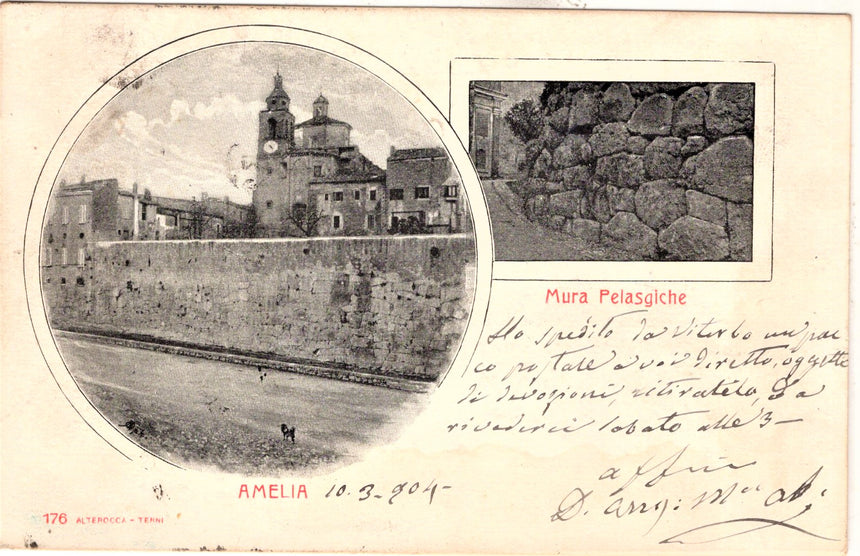 Mura Pelasgiche
Ho spedito da Viterbo un pac
co postale a voi diretto, oggette
di devozioni, ritiratelo, e a
rivederci sabato alle 3-
affmo
D.
AMELIA 10.3-904-
176 ALTEROCCA - TERNI